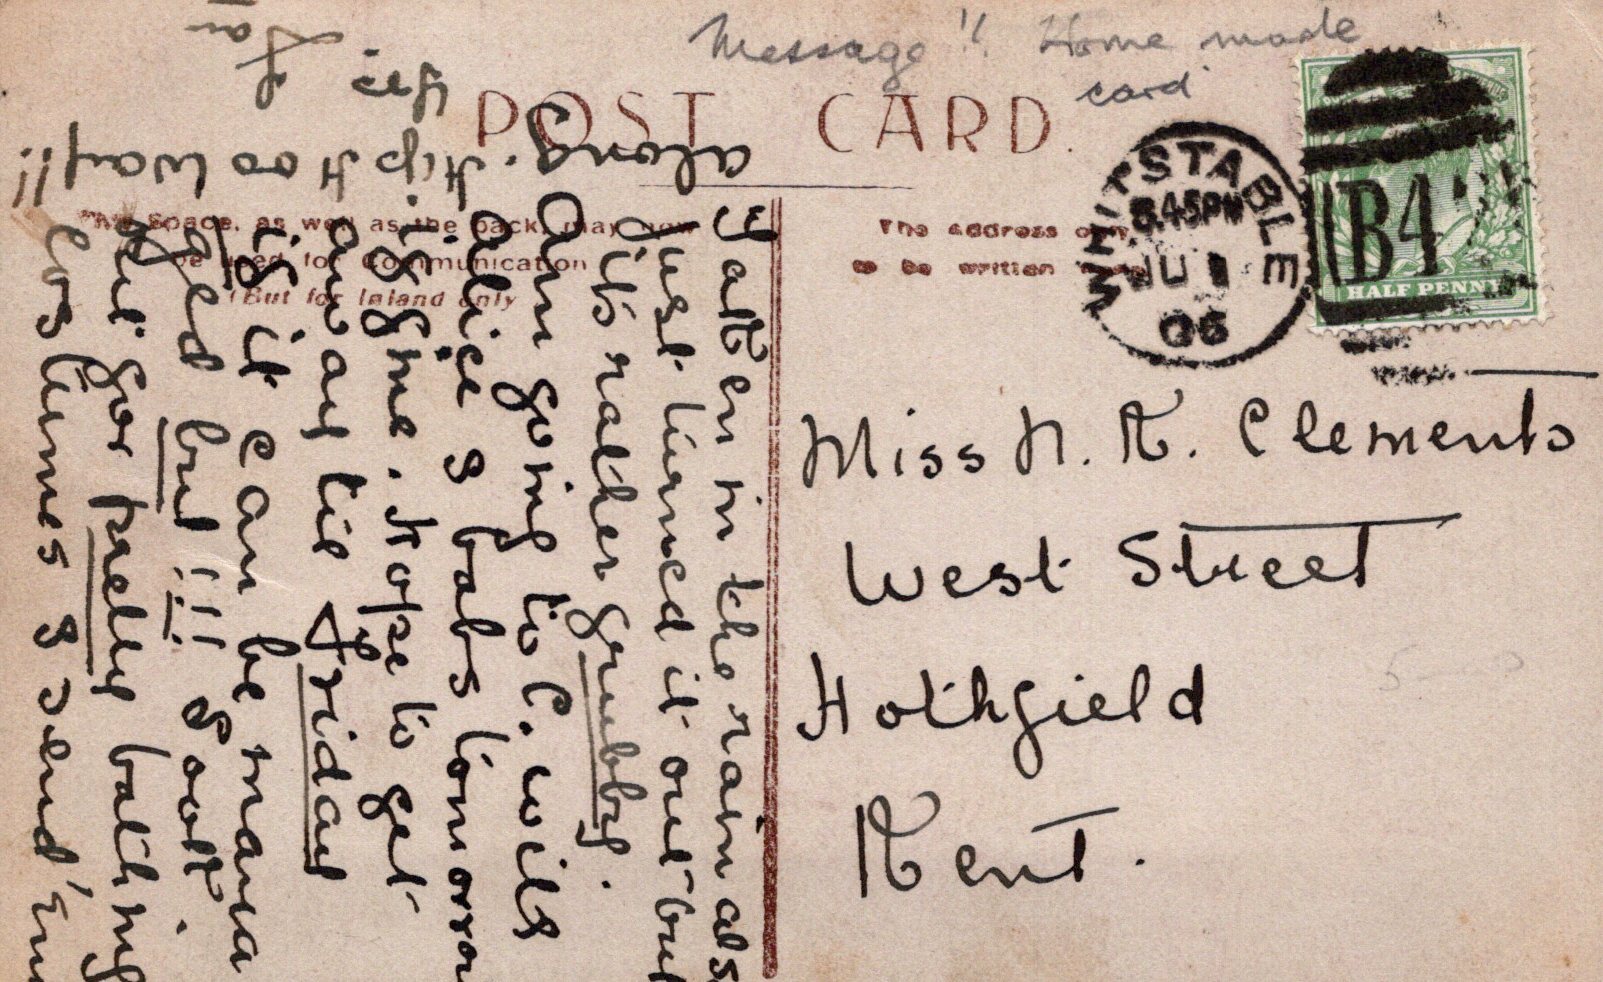 Message !! Home made
card
POST CARD.
This Space, as well as the back, may now
be used for Communication
(But for Inland only
The address only
to be written
WHITSTABLE
8.45PM
JU 1
06
B4
HALF PENNY
in the rain als
Just turned it out but
it's rather grubby.
Am going to C. with
Alice & babs tomorrow
if fine. Hope to get
away til Friday
if it can be mana
ged but !!! Look
out for pretty bathing
costumes & send 'em
along. Hip Hoo Way!!
Yrs.
Miss N. K. Clements
West Street
Hothfield
Kent.